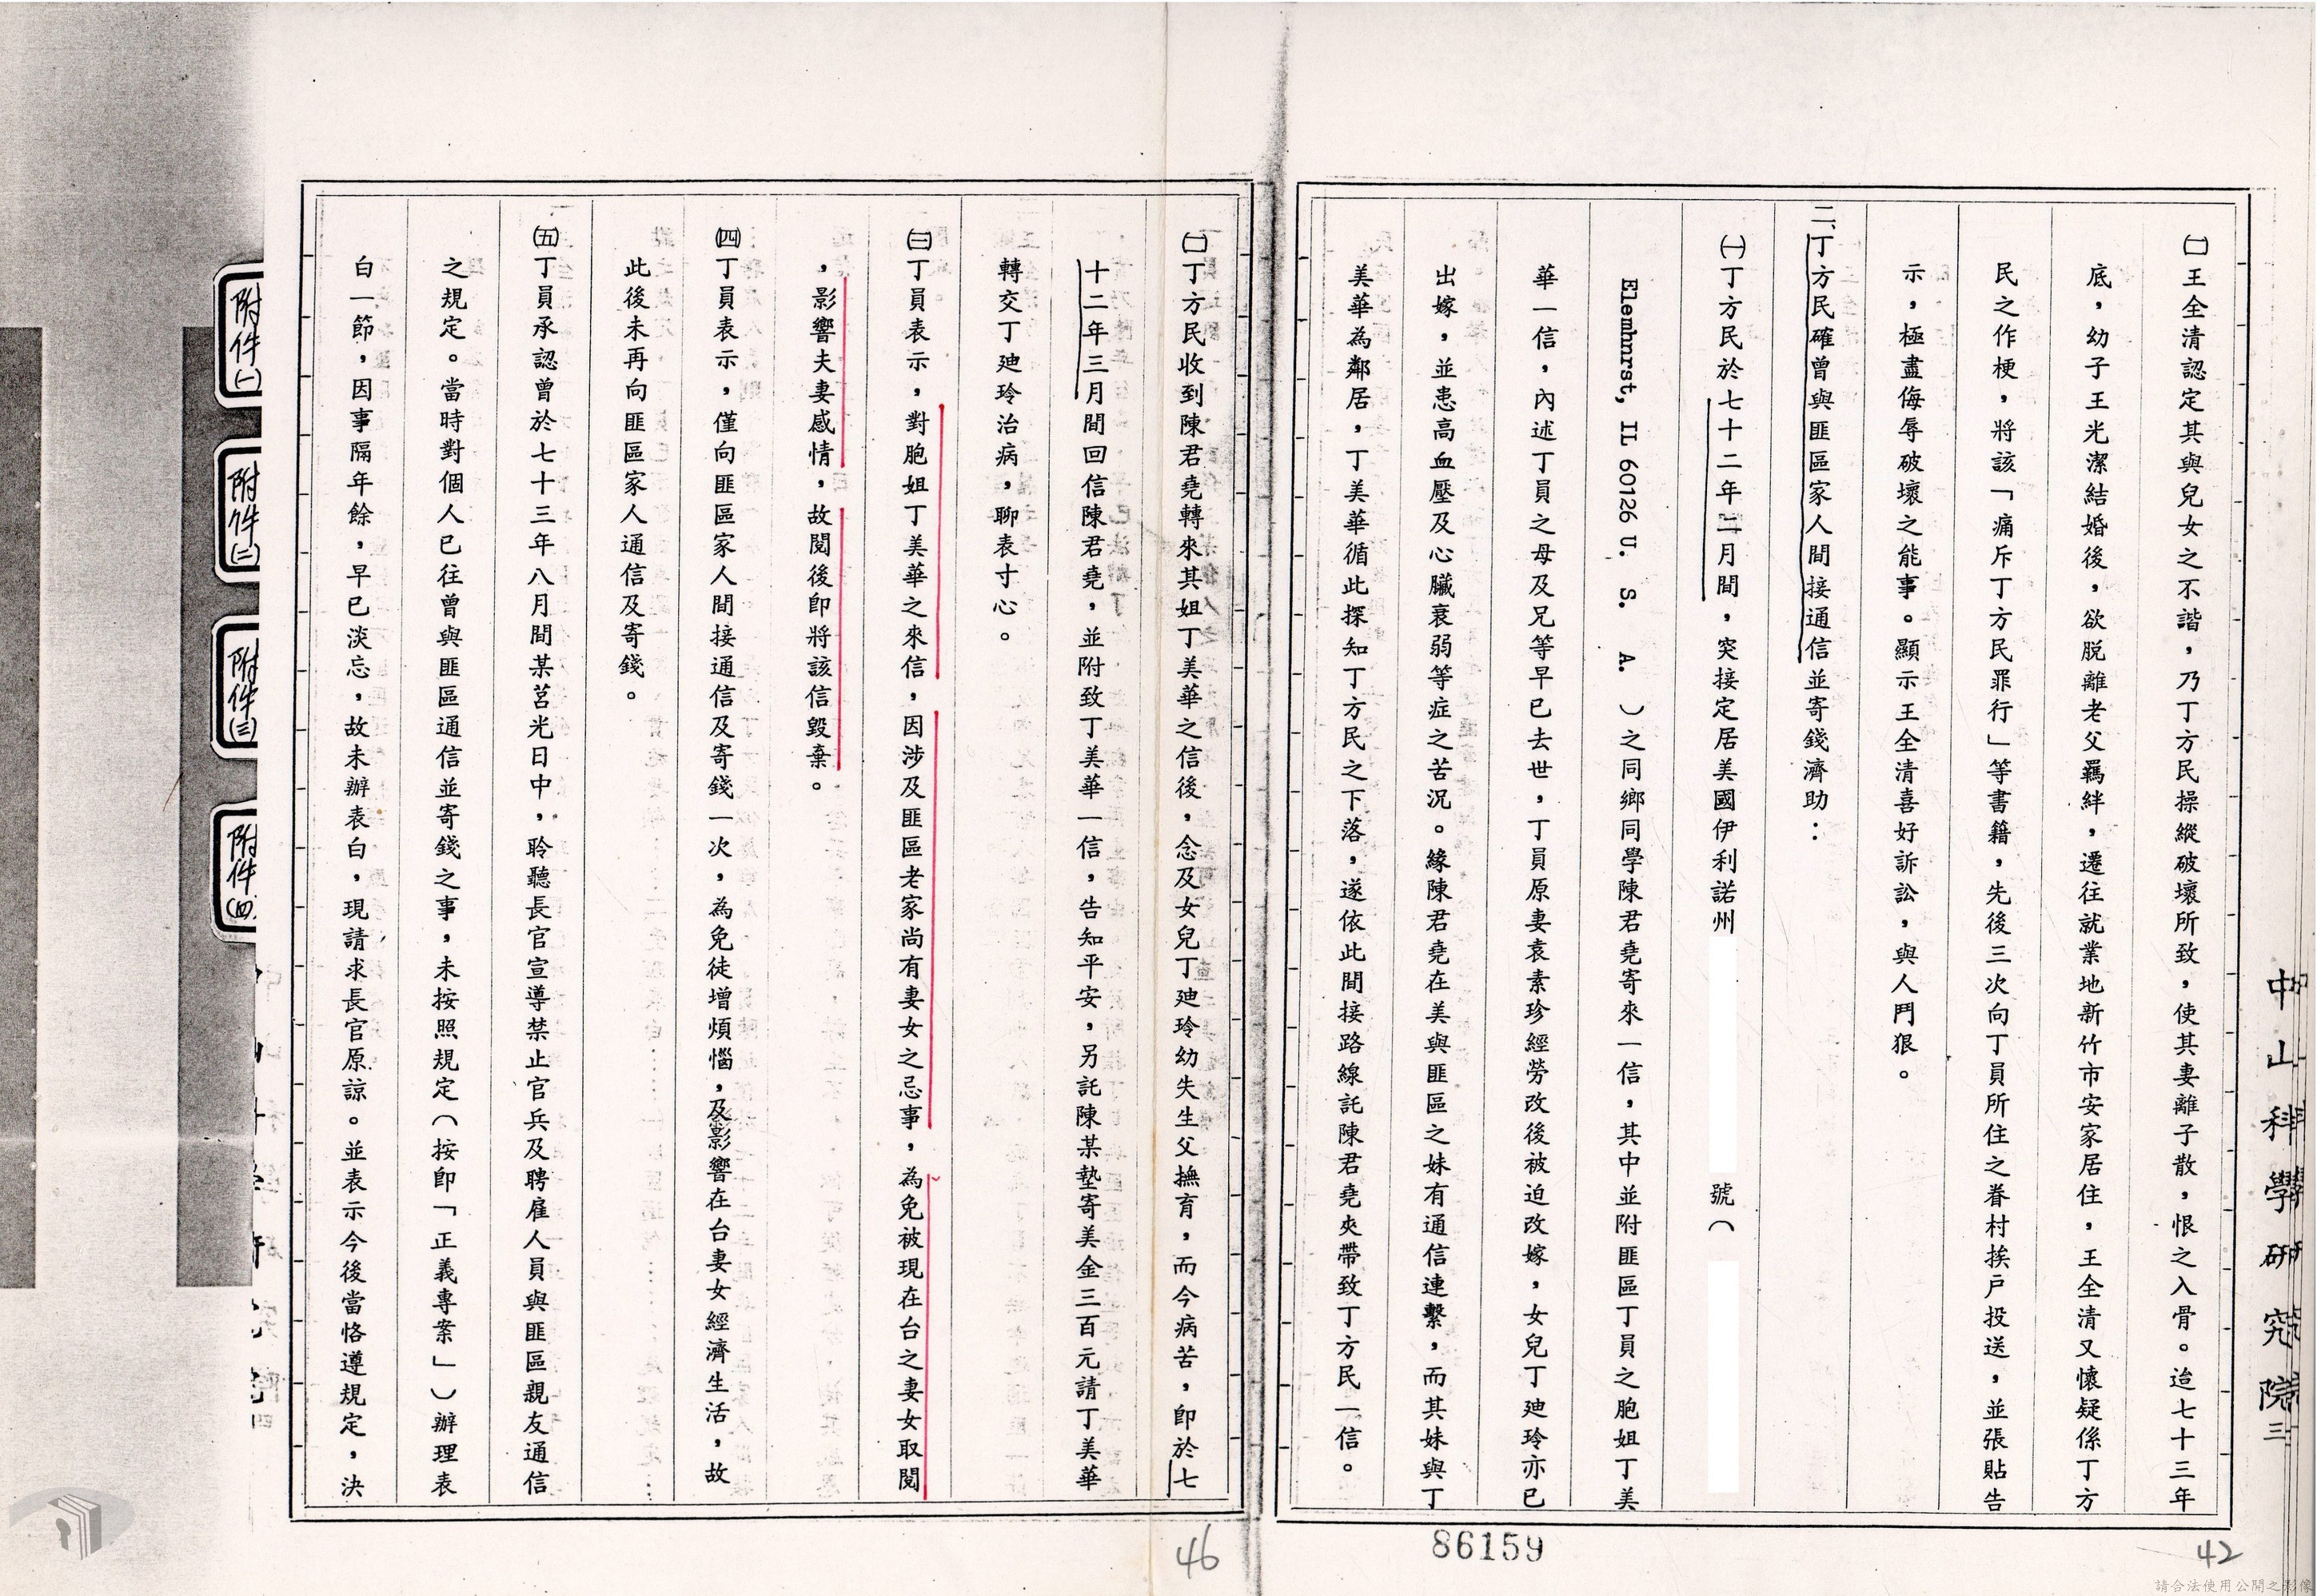 中山科學研究院 三
㈡王全清認定其與兒女之不諧，乃丁方民操縱破壞所致，使其妻離子散，恨之入骨。迨七十三年
底，幼子王光潔結婚後，欲脱離老父羈絆，遷往就業地新竹市安家居住，王全清又懷疑係丁方
民之作梗，將該「痛斥丁方民罪行」等書籍，先後三次向丁員所住之眷村挨戶投送，並張貼告
示，極盡侮辱破壞之能事。顯示王全清喜好訴訟，與人鬥狠。
二、丁方民確曾與匪區家人間接通信並寄錢濟助：
㈠丁方民於七十二年二月間，突接定居美國伊利諾州 號（
Elemhnrst, IL 60126 U. S. A. ）之同鄉同學陳君堯寄來一信，其中並附匪區丁員之胞姐丁美
華一信，內述丁員之母及兄等早已去世，丁員原妻袁素珍經勞改後被迫改嫁，女兒丁廸玲亦已
出嫁，並患高血壓及心臟衰弱等症之苦況。緣陳君堯在美與匪區之妹有通信連繫，而其妹與丁
美華為鄰居，丁美華循此探知丁方民之下落，遂依此間接路線託陳君堯夾帶致丁方民一信。
㈡丁方民收到陳君堯轉來其姐丁美華之信後，念及女兒丁廸玲幼失生父撫育，而今病苦，即於七
十二年三月間回信陳君堯，並附致丁美華一信，告知平安，另託陳某墊寄美金三百元請丁美華
轉交丁廸玲治病，聊表寸心。
㈢丁員表示，對胞姐丁美華之來信，因涉及匪區老家尚有妻女之忌事，為免被現在台之妻女取閱
，影響夫妻感情，故閱後即將該信毀棄。
㈣丁員表示，僅向匪區家人間接通信及寄錢一次，為免徒增煩惱，及影響在台妻女經濟生活，故
此後未再向匪區家人通信及寄錢。
㈤丁員承認曾於七十三年八月間某莒光日中，聆聽長官宣導禁止官兵及聘雇人員與匪區親友通信
之規定。當時對個人已往曾與匪區通信並寄錢之事，未按照規定（按即「正義專案」）辦理表
白一節，因事隔年餘，早已淡忘，故未辦表白，現請求長官原諒。並表示今後當恪遵規定，決
附件㈠
附件㈡
附件㈢
附件㈣
46
86159
42
請合法使用公開之影像